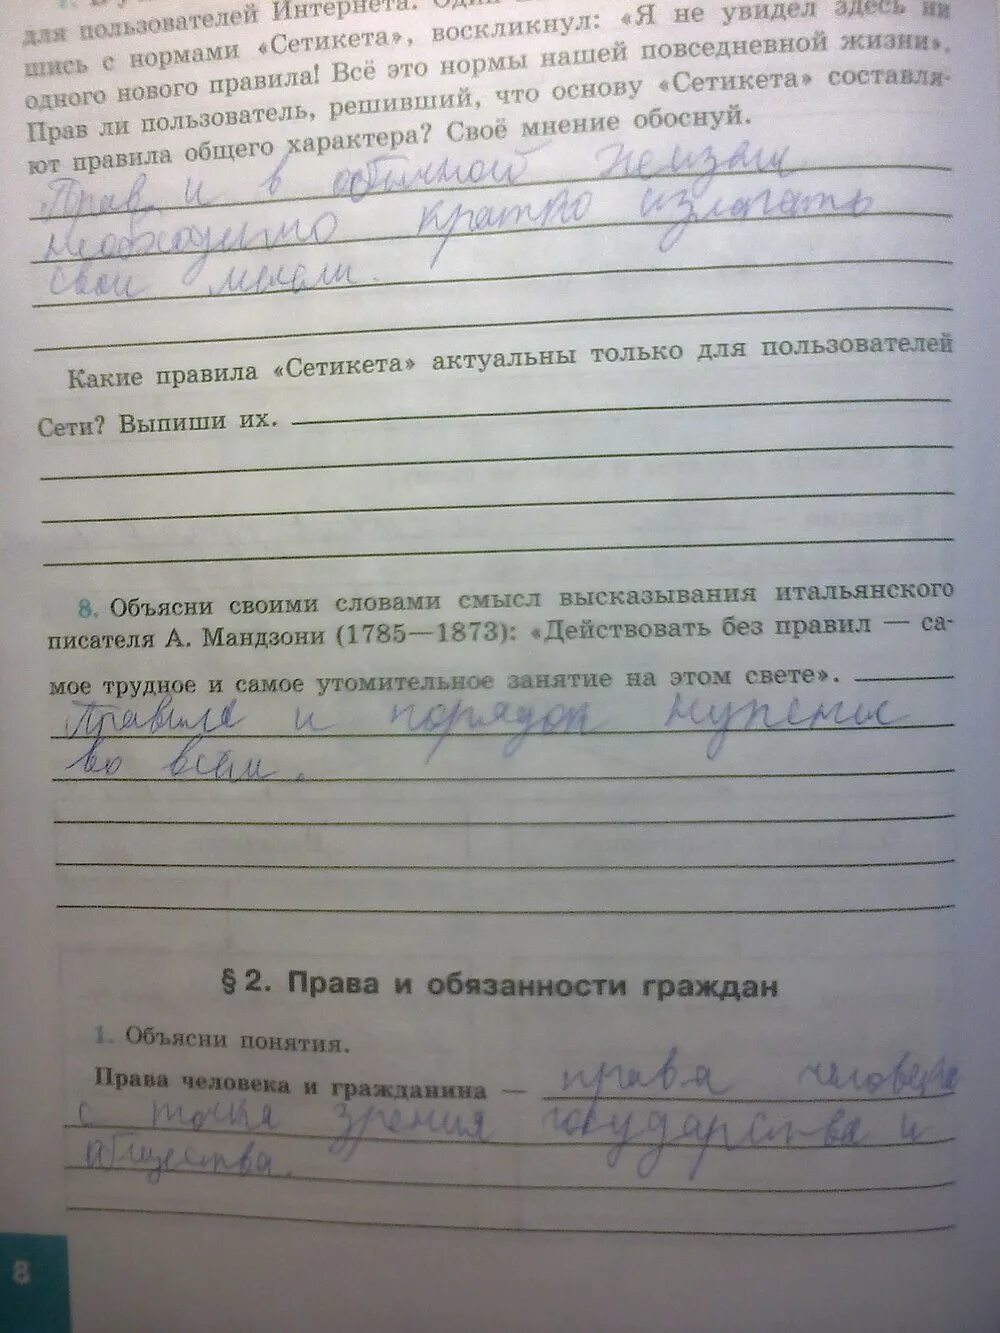 для пользователей Интернета. Один
шись с нормами «Сетикета», воскликнул: «Я не увидел здесь ни
одного нового правила! Всё это нормы нашей повседневной жизни».
Прав ли пользователь, решивший, что основу «Сетикета» составля-
ют правила общего характера? Своё мнение обоснуй.
Прав, и в обычной
необходимо кратко излагать
свои мысли.
Какие правила «Сетикета» актуальны только для пользователей
Сети? Выпиши их.
8. Объясни своими словами смысл высказывания итальянского
писателя А. Мандзони (1785—1873): «Действовать без правил — са-
мое трудное и самое утомительное занятие на этом свете».
Правила и порядок нужены
во всём.
§ 2. Права и обязанности граждан
1. Объясни понятия.
Права человека и гражданина — права человека
с точки зрения государства и
общества.
8